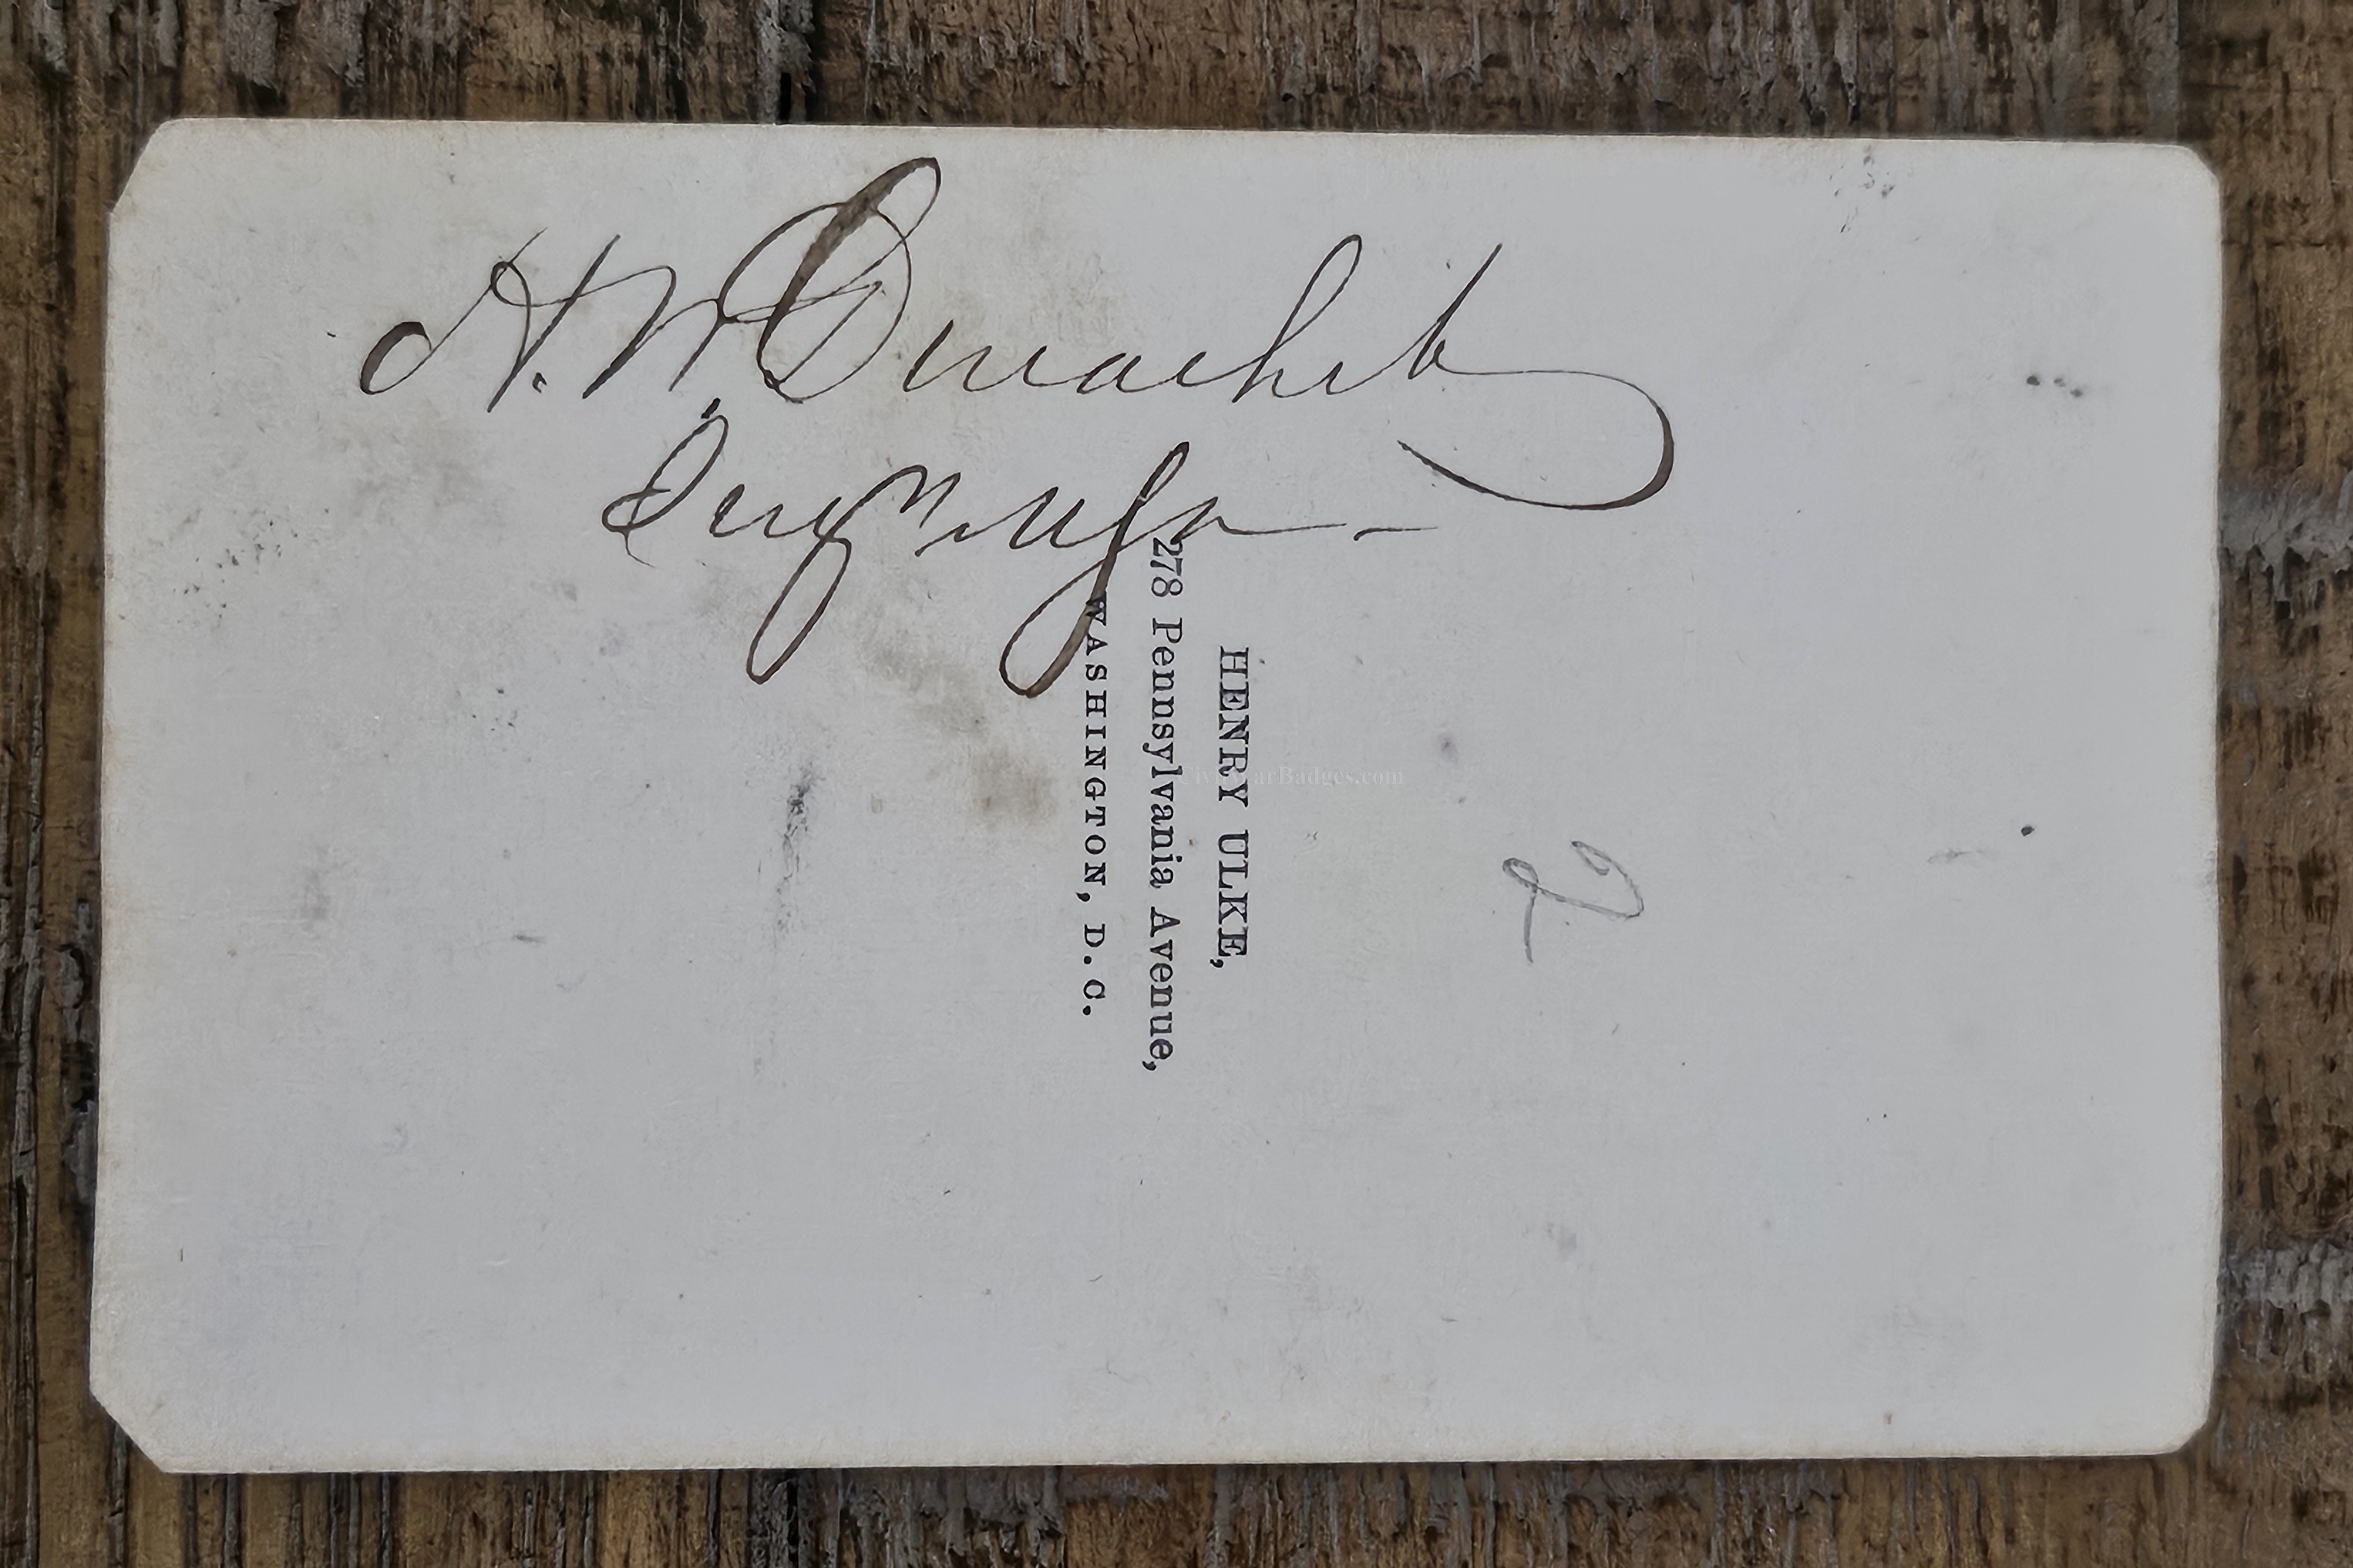 H. W. Ducachet
Surg
HENRY ULKE,
278 Pennsylvania Avenue,
WASHINGTON, D.C.
CivilWarBadges.com
2